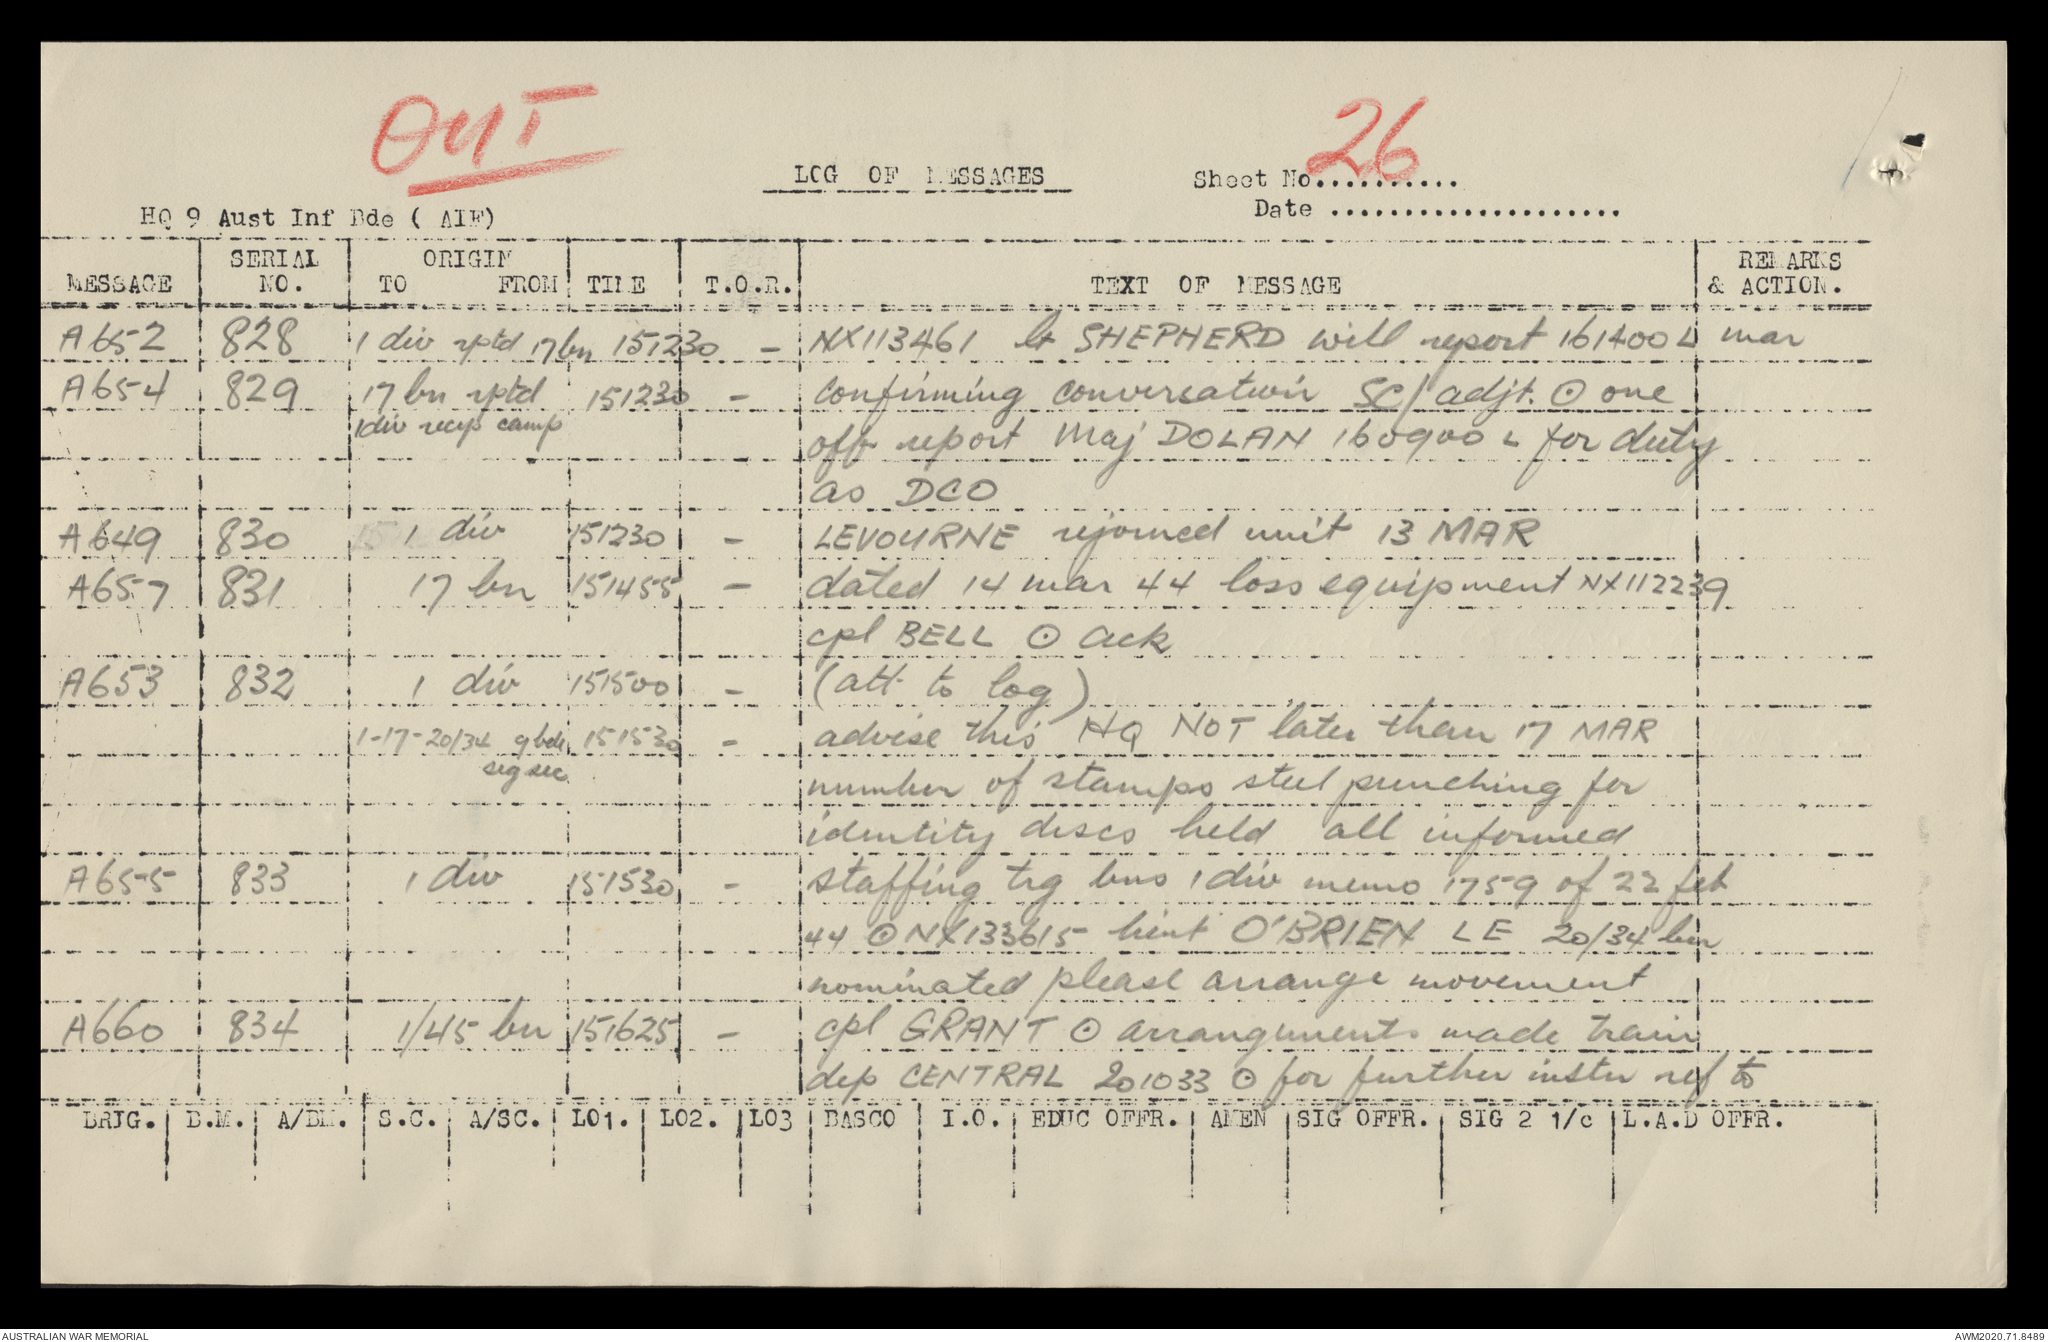 OUT
LOG OF MESSAGES
Sheet No...........
26
Date ....................
HQ 9 Aust Inf Bde ( AIF)
MESSAGE SERIAL NO. ORIGIN TO FROM TIME T.O.R. TEXT OF MESSAGE REMARKS & ACTION.
A652 828 1 div rptd 17 bn 151230 - NX113461 Lt SHEPHERD will report 161400 L mar
A654 829 17 bn rptd 151230 - confirming conversation SC/adjt. ⊙ one
1 div recep camp offr report Maj DOLAN 160900 L for duty
as DCO
A649 830 1 div 151230 - LEVOURNE rejoined unit 13 MAR
A657 831 17 bn 151455 - dated 14 mar 44 loss equipment NX112239
cpl BELL ⊙ ack
A653 832 1 div 151500 - (att. to log)
1-17-20/34 9 bde 151530 - advise this HQ NOT later than 17 MAR
sig sec number of stamps steel punching for
identity discs held all informed
A655 833 1 div 151530 - staffing trg bns 1 div memo 1759 of 22 feb
44 ⊙ NX133615 lieut O'BRIEN LE 20/34 bn
nominated please arrange movement
A660 834 1/45 bn 151625 - cpl GRANT ⊙ arrangements made train
dep CENTRAL 201033 ⊙ for further instr ref to
BRIG. B.M. A/BM. S.C. A/SC. LO1. LO2. LO3 BASCO I.O. EDUC OFFR. AMEN SIG OFFR. SIG 2 1/c L.A.D OFFR.
AUSTRALIAN WAR MEMORIAL
AWM2020.71.8489